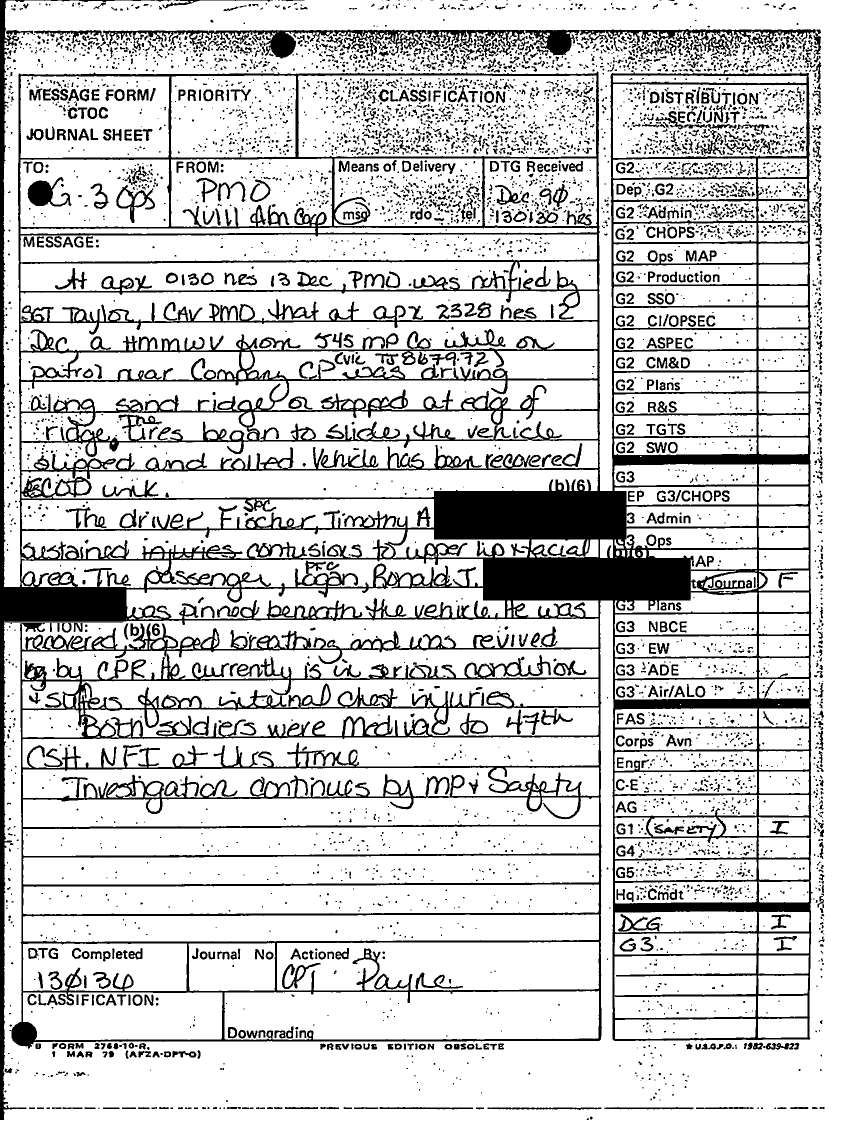 MESSAGE FORM/
CTOC
JOURNAL SHEET
PRIORITY
CLASSIFICATION
TO:
G-3 Ops
FROM:
PMO
XVIII Abn Corp
Means of Delivery
msg rdo tel
DTG Received
Dec 9Ø
130130 hrs
MESSAGE:
At apx 0130 hrs 13 Dec, PMO was notified by
SGT Taylor, 1 CAV PMO, that at apx 2328 hrs 12
Dec, a HMMWV from 545 MP Co while on
(vic TJ867972)
patrol near Company CP was driving
along sand ridge or stopped at edge of
ridge. The tires began to slide, the vehicle
slipped and rolled. Vehicle has been recovered
unk.
(b)(6)
The driver, SPC Fischer, Timothy A
sustained injuries contusions to upper lip + facial
(b)(6)
area. The passenger, PFC Logan, Ronald J.
was pinned beneath the vehicle. He was
ACTION: (b)(6)
recovered, stopped breathing and was revived
by CPR. He currently is in serious condition
+ suffers from internal chest injuries.
Both soldiers were Medivac to 47th
CSH. NFI at this time
Investigation continues by MP + Safety
DTG Completed
Journal No
Actioned By:
CPT Payne
CLASSIFICATION:
Downgrading
FB FORM 2768-10-R,
1 MAR 79 (AFZA-DPT-O)
PREVIOUS EDITION OBSOLETE
★ U.S.G.P.O.: 1982-639-822
DISTRIBUTION
SEC/UNIT
G2
Dep G2
G2 Admin
G2 CHOPS
G2 Ops MAP
G2 Production
G2 SSO
G2 CI/OPSEC
G2 ASPEC
G2 CM&D
G2 Plans
G2 R&S
G2 TGTS
G2 SWO
G3
EP G3/CHOPS
3 Admin
G3 Ops
MAP
Journal F
G3 Plans
G3 NBCE
G3 EW
G3 ADE
G3 Air/ALO
FAS
Corps Avn
Engr
C-E
AG
G1 (SAFETY) I
G4
G5
Hq. Cmdt
DCG I
G3 I